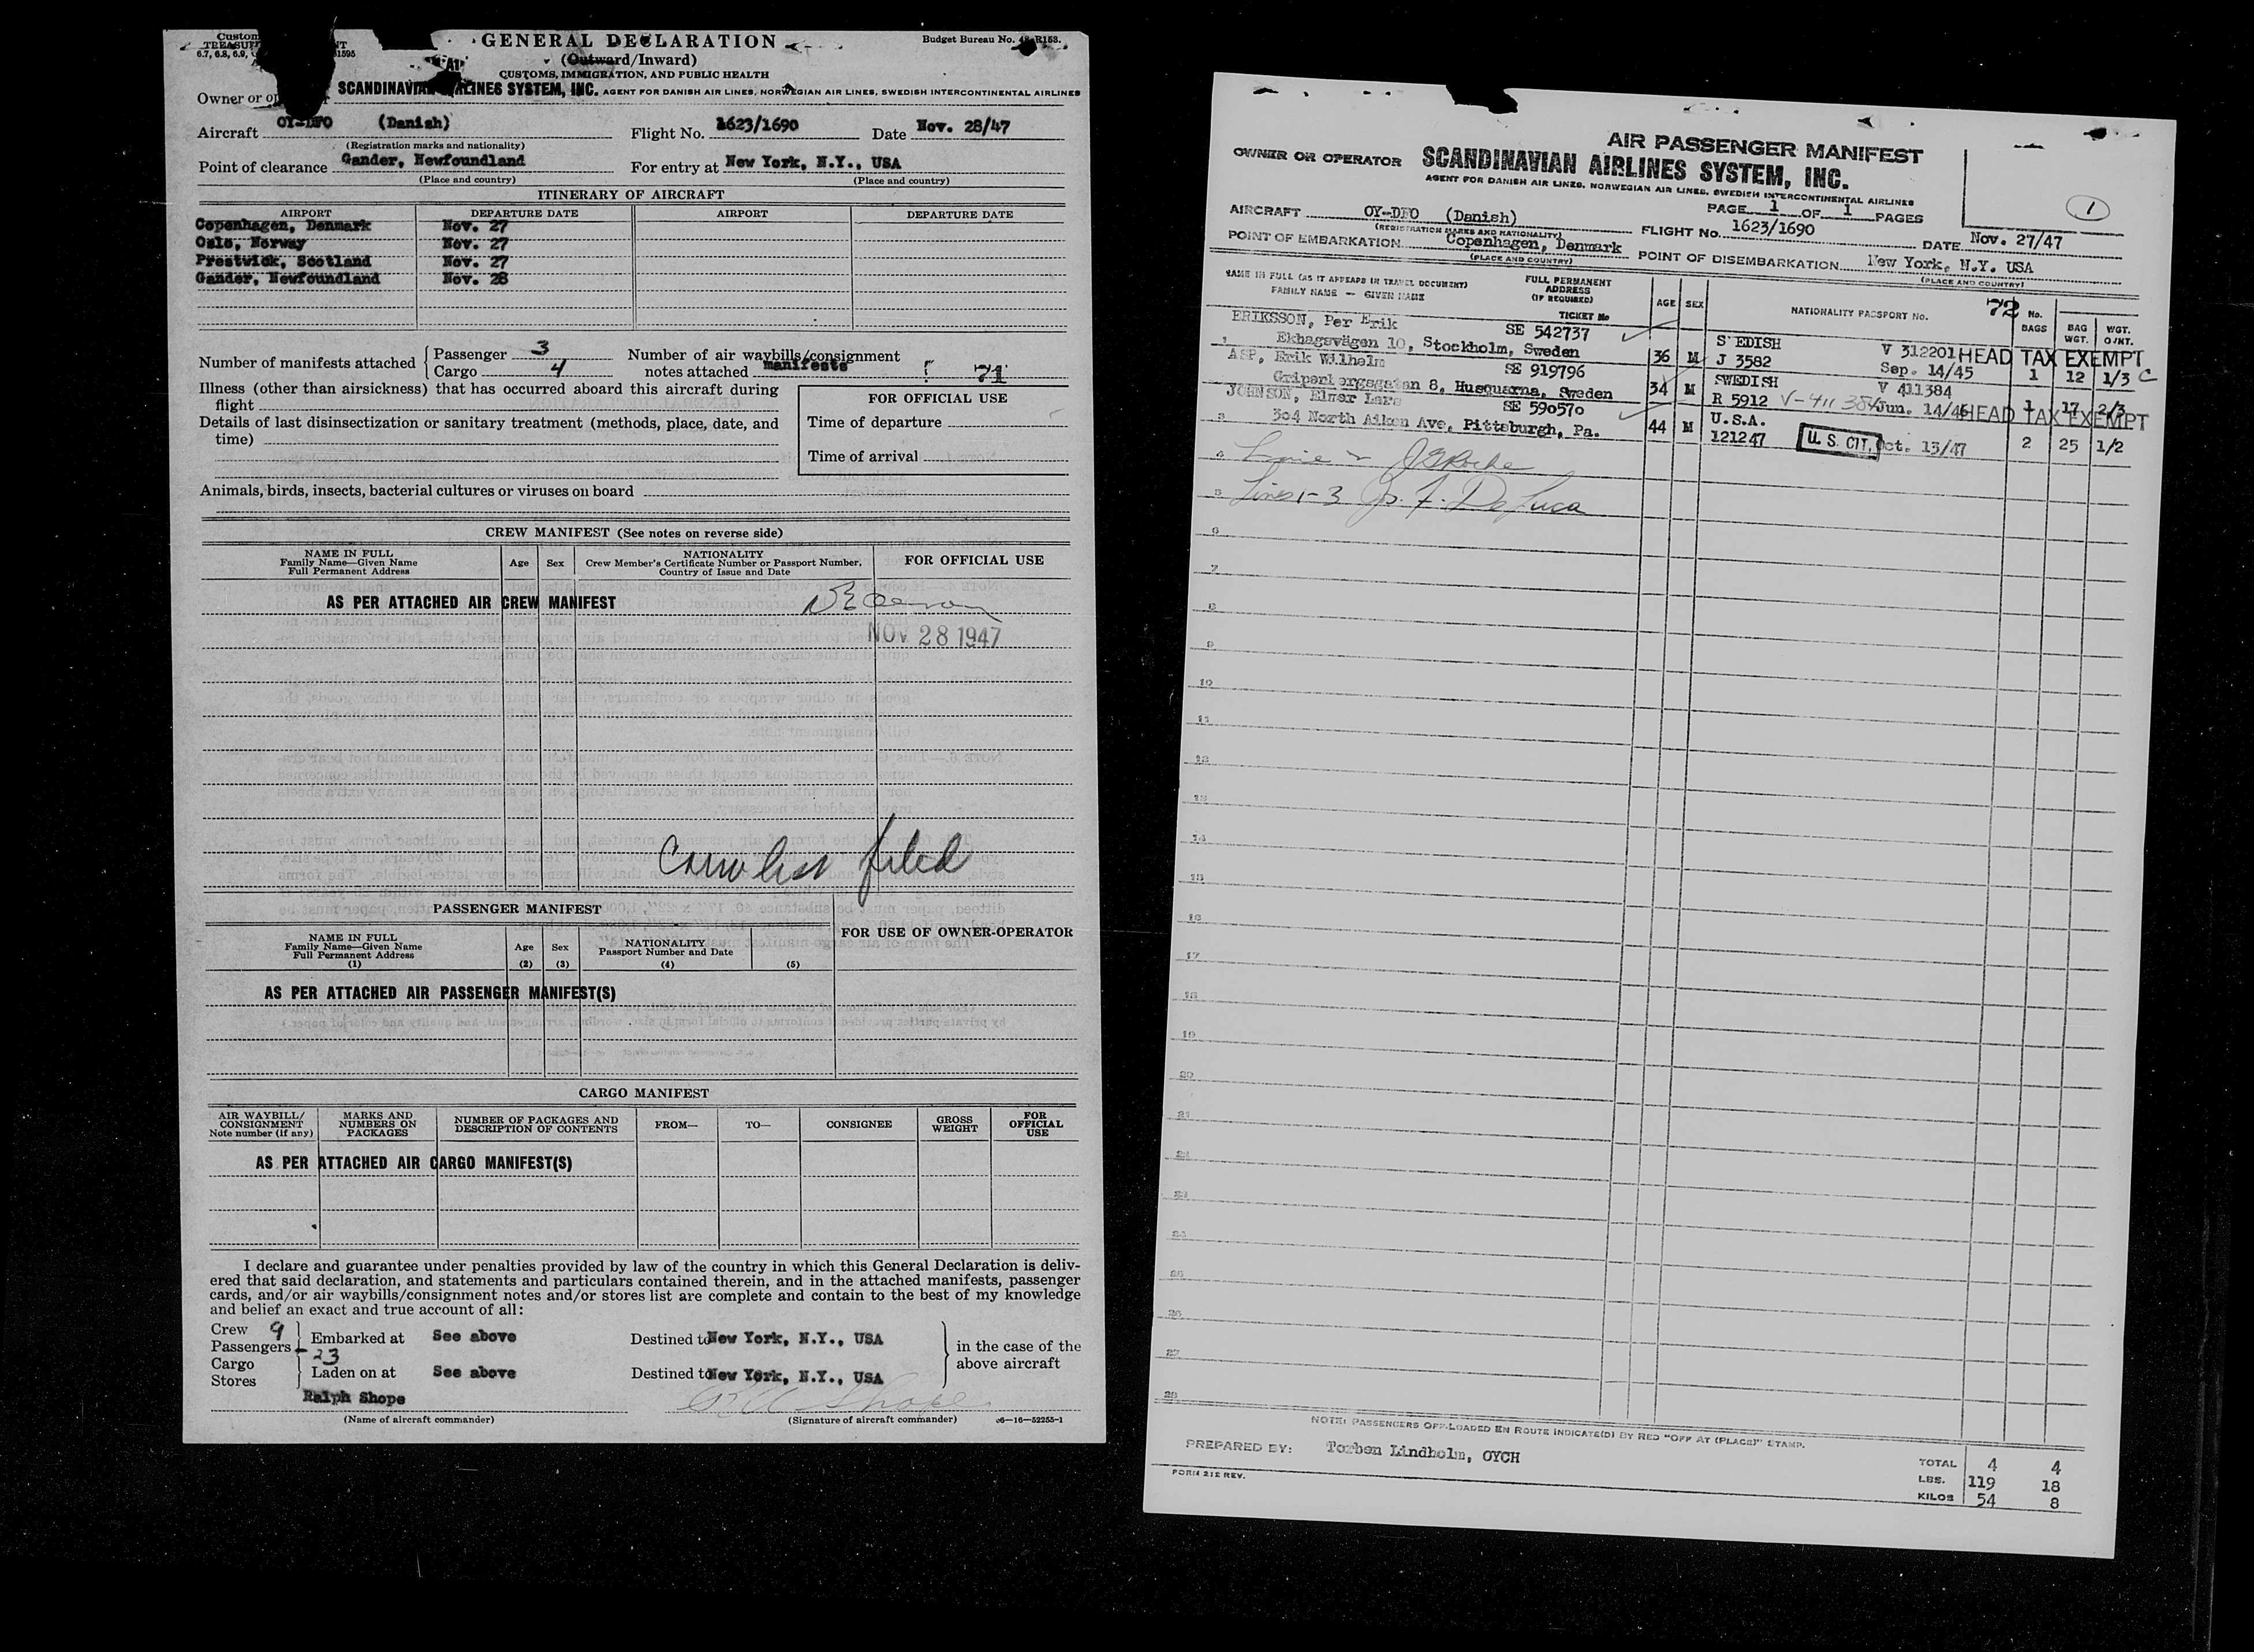 GENERAL DECLARATION
Budget Bureau No. R153.
(Outward/Inward)
6.7, 6.8, 6.9,
CUSTOMS, IMMIGRATION, AND PUBLIC HEALTH
SCANDINAVIAN AIRLINES SYSTEM, INC. AGENT FOR DANISH AIR LINES, NORWEGIAN AIR LINES, SWEDISH INTERCONTINENTAL AIRLINES
Owner or
Aircraft OY-DFO (Danish) Flight No. 1623/1690 Date Nov. 28/47
(Registration marks and nationality)
Point of clearance Gander, Newfoundland For entry at New York, N.Y., USA
(Place and country) (Place and country)
ITINERARY OF AIRCRAFT
AIRPORT DEPARTURE DATE AIRPORT DEPARTURE DATE
Copenhagen, Denmark Nov. 27
Oslo, Norway Nov. 27
Prestwick, Scotland Nov. 27
Gander, Newfoundland Nov. 28
Number of manifests attached { Passenger 3 Number of air waybills/consignment
Cargo 4 notes attached manifests 71
Illness (other than airsickness) that has occurred aboard this aircraft during
flight
Details of last disinsectization or sanitary treatment (methods, place, date, and
time)
FOR OFFICIAL USE
Time of departure
Time of arrival
Animals, birds, insects, bacterial cultures or viruses on board
CREW MANIFEST (See notes on reverse side)
NAME IN FULL
Family Name—Given Name
Full Permanent Address
Age Sex
NATIONALITY
Crew Member's Certificate Number or Passport Number,
Country of Issue and Date
FOR OFFICIAL USE
AS PER ATTACHED AIR CREW MANIFEST
NOV 28 1947
filed
PASSENGER MANIFEST
NAME IN FULL
Family Name—Given Name
Full Permanent Address
(1)
Age
(2)
Sex
(3)
NATIONALITY
Passport Number and Date
(4) (5)
FOR USE OF OWNER-OPERATOR
AS PER ATTACHED AIR PASSENGER MANIFEST(S)
CARGO MANIFEST
AIR WAYBILL/
CONSIGNMENT
Note number (if any)
MARKS AND
NUMBERS ON
PACKAGES
NUMBER OF PACKAGES AND
DESCRIPTION OF CONTENTS
FROM—
TO—
CONSIGNEE
GROSS
WEIGHT
FOR
OFFICIAL
USE
AS PER ATTACHED AIR CARGO MANIFEST(S)
I declare and guarantee under penalties provided by law of the country in which this General Declaration is deliv-
ered that said declaration, and statements and particulars contained therein, and in the attached manifests, passenger
cards, and/or air waybills/consignment notes and/or stores list are complete and contain to the best of my knowledge
and belief an exact and true account of all:
Crew 9
Passengers 23
Cargo
Stores
Embarked at See above Destined to New York, N.Y., USA
Laden on at See above Destined to New York, N.Y., USA
in the case of the
above aircraft
Ralph Shope
(Name of aircraft commander) (Signature of aircraft commander) c6—16—52255-1
AIR PASSENGER MANIFEST
OWNER OR OPERATOR SCANDINAVIAN AIRLINES SYSTEM, INC.
AGENT FOR DANISH AIR LINES, NORWEGIAN AIR LINES, SWEDISH INTERCONTINENTAL AIRLINES
1
PAGE 1 OF 1 PAGES
AIRCRAFT OY-DFO (Danish) FLIGHT No. 1623/1690 DATE Nov. 27/47
(REGISTRATION MARKS AND NATIONALITY)
POINT OF EMBARKATION Copenhagen, Denmark POINT OF DISEMBARKATION New York, N.Y. USA
(PLACE AND COUNTRY) (PLACE AND COUNTRY)
NAME IN FULL (AS IT APPEARS IN TRAVEL DOCUMENT)
FAMILY NAME — GIVEN NAME
FULL PERMANENT
ADDRESS
(IF REQUIRED)
TICKET No
AGE SEX
NATIONALITY PASSPORT No.
72
No.
BAGS
BAG
WGT.
WGT.
O/KT.
ERIKSSON, Per Erik SE 542737 S EDISH V 312201 HEAD TAX EXEMPT
1 Ekhagsvägen 10, Stockholm, Sweden 36 M J 3582 Sep. 14/45 1 12 1/3 C
ASP, Erik Wilhelm SE 919796 SWEDISH V 411384
Gripenbergsgatan 8, Husquarna, Sweden 34 M R 5912 V-411 384 Jun. 14/46 HEAD TAX EXEMPT 1 17 2/3
JOHNSON, Elmer Lars SE 590570 U.S.A.
3 304 North Aiken Ave, Pittsburgh, Pa. 44 M 121247 U. S. CIT. Oct. 15/47 2 25 1/2
4
5 Lines 1-3 Jos. F. DeLuca
6
7
8
9
10
11
12
13
14
15
16
17
18
19
20
21
22
23
24
25
26
27
28
NOTE: PASSENGERS OFF-LOADED EN ROUTE INDICATE(D) BY RED "OFF AT (PLACE)" STAMP.
PREPARED BY: Torben Lindholm, OYCH
TOTAL 4 4
LBS. 119 18
KILOS 54 8
FORM 212 REV.